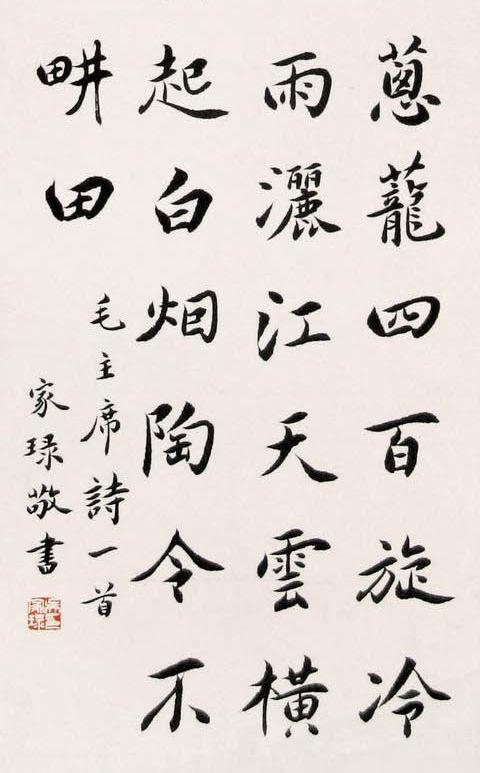 蔥蘢四百旋冷
雨灑江天雲橫
起白烟陶令不
畊田
毛主席詩一首
家琭敬書